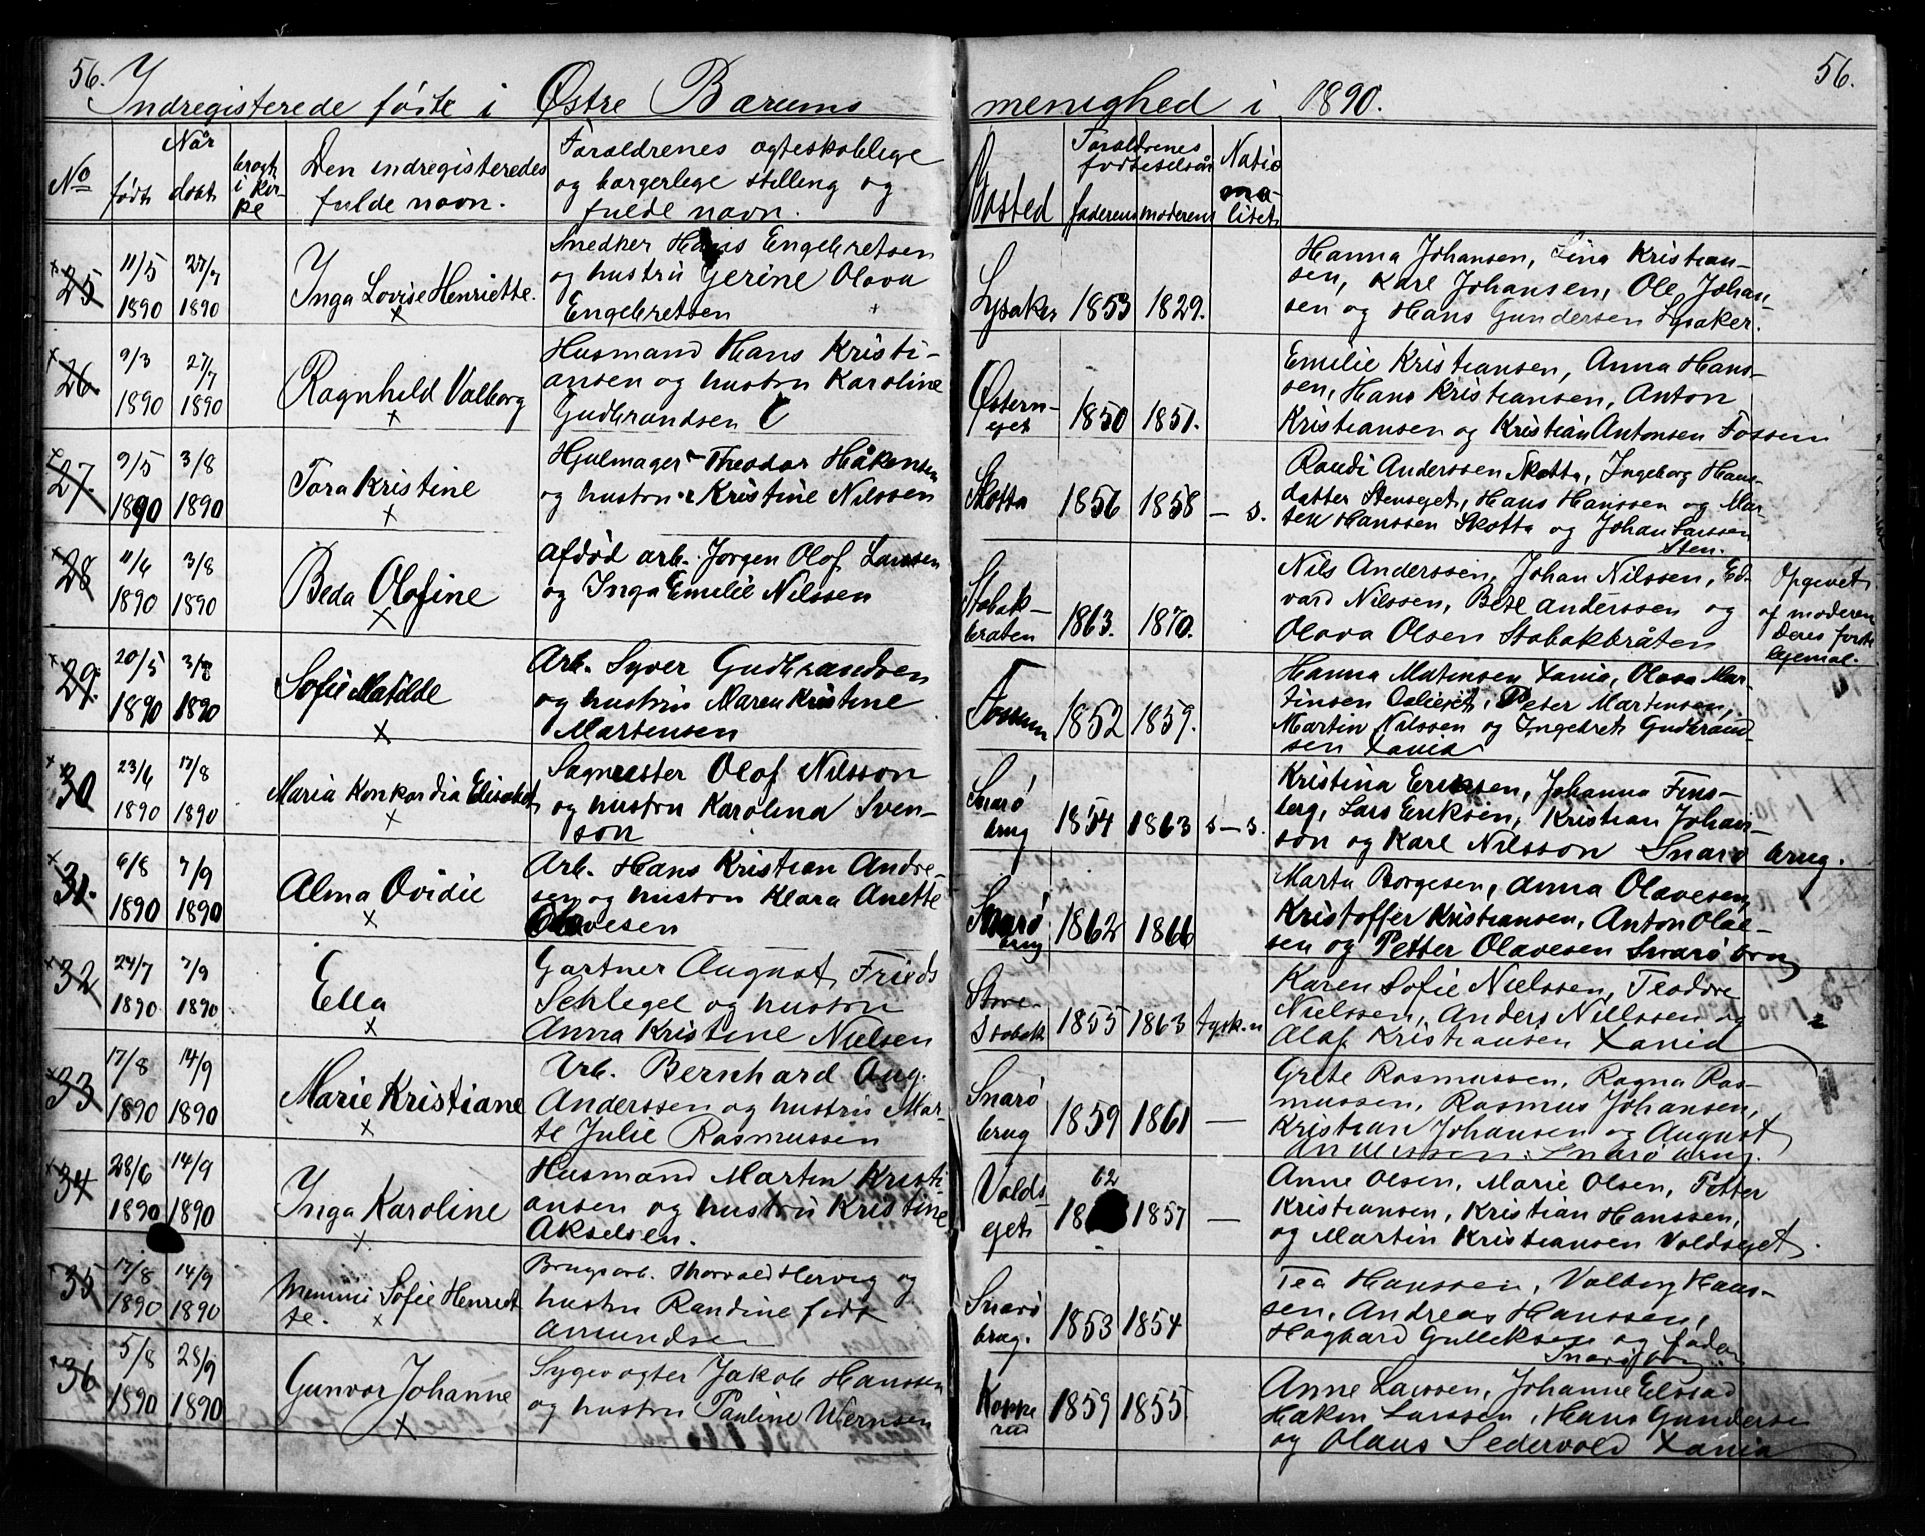 56.
Indregisterede føste i Østre Bærums menighed i 1890.
56.
No
Når
født
døbt
bragt i kirke
Den indregisteredes
fulde navn.
Forældrenes ægteskablige
og borgerlege stilling og
fulde navn.
Bosted
Foraldrenes
fødselsår
faderens moderens
Natio
na-
litet
25
11/5
1890
27/7
1890
Inga Lovise Henriette.
Snedker Hans Engebretsen
og hustru Gerine Olava
Engebretsen
Lysaker
1853
1829.
Hanna Johansen, Lina Kristian-
sen, Karl Johansen, Ole Johan-
sen og Hans Gundersen Lysaker.
26
9/3
1890
27/7
1890
Ragnhild Valborg
Husmand Hans Kristi-
ansen og hustru Karoline
Gudbrandsen
Østern-
eget
1850
1851.
Emilie Kristiansen, Anna Hans-
sen, Hans Kristiansen, Anton
Kristiansen og Kristian Antonsen Fossem
27.
9/5
1890
3/8
1890
Tora Kristine
Hjulmager Theodor Håkensen
og hustru Kristine Nilssen
Skotta
1856
1858
- s.
Randi Anderssen Skotta, Ingeborg Hans-
datter Stenseget, Hans Hanssen og Mar
ten Hanssen Skotta og Johan Larssen
Sten.
28
11/6
1890
3/8
1890
Beda Olofine
Afdød arb. Jørgen Olof Larssen
og Inga Emilie Nilssen
Stabak-
braten
1863.
1870.
Nils Anderssen, Johan Nilssen, Ed-
vard Nilssen, Berte Anderssen og
Olava Olsen Stabakbråten
Opgivet
af moderen
Deres første
lejemal.
29.
20/5
1890
3/8
1890
Sofie Matilde
Arb. Syver Gudbrandsen
og hustru Maren Kristine
Martensen
Fossum
1852
1859.
Hanna Matensen Xania, Olava Mar-
tinsen, Peter Martensen,
Martin Nilssen og Ingebret Gudbrand
sen Xania
30
23/6
1890
17/8
1890
Maria Konkordia Elisabet
Sagmester Olof Nilsson
og hustru Karolina Sven-
son
Snarø
brug
1854
1863
s - s.
Kristina Eriksen, Johanna Fins-
berg, Lars Eriksen, Kristian Johan-
son og Karl Nilsson Snarø brug.
31.
6/8
1890
7/9
1890
Alma Ovidie
Arb. Hans Kristian Andre-
sen og hustru Klara Anette
Olavesen
Snarø
brug
1862
1866
Marta Borgesen, Anna Olavesen,
Kristoffer Kristiansen, Anton Olae-
sen og Petter Olavesen Snarø brug
32
24/7
1890
7/9
1890
Ella
Gartner August Frieds
Schlegel og hustru
Anna Kristine Nielsen
Store
Stabak
1855
1863
tysk. n
Karen Sofie Nielssen, Teodore
Nielssen, Anders Nielssen og
Olaf Kristiansen Xania
33
17/8
1890
14/9
1890
Marie Kristiane
Arb. Bernhard Aug.
Anderssen og hustru Mar-
te Julie Rasmussen
Snarø
brug
1859
1861
-
Grete Rasmussen, Ragna Ras-
mussen, Rasmus Johansen,
Kristian Johansen og August
Anderssen Snarø brug.
34
28/6
1890
14/9
1890
Inga Karoline
Husmand Martin Kristi-
ansen og hustru Kristine
Akselsen.
Volds
eget
62
18
1857
-
Anne Olsen, Marie Olsen, Petter
Kristiansen, Kristian Hanssen,
og Martin Kristiansen Voldseget.
35
17/8
1890
14/9
1890
Mimmi Sofie Henriet
te.
Brugsarb. Thorvald Hervig og
hustru Randine født
Amundsen
Snarø
brug.
1853
1854
Tea Hanssen, Valborg Hans-
sen, Andreas Hanssen,
Hagbard Gulleksen og faderen
Snarø brug
36
5/8
1890
28/9
1890
Gunvor Johanne
Sygevogter Jakob Hanssen
og hustru Pauline Wernsen
Koppe
rud
1859
1855
Anne Larssen, Johanne Elstad
Hakon Larssen, Hans Gundersen
og Olaus Sedervold Xania